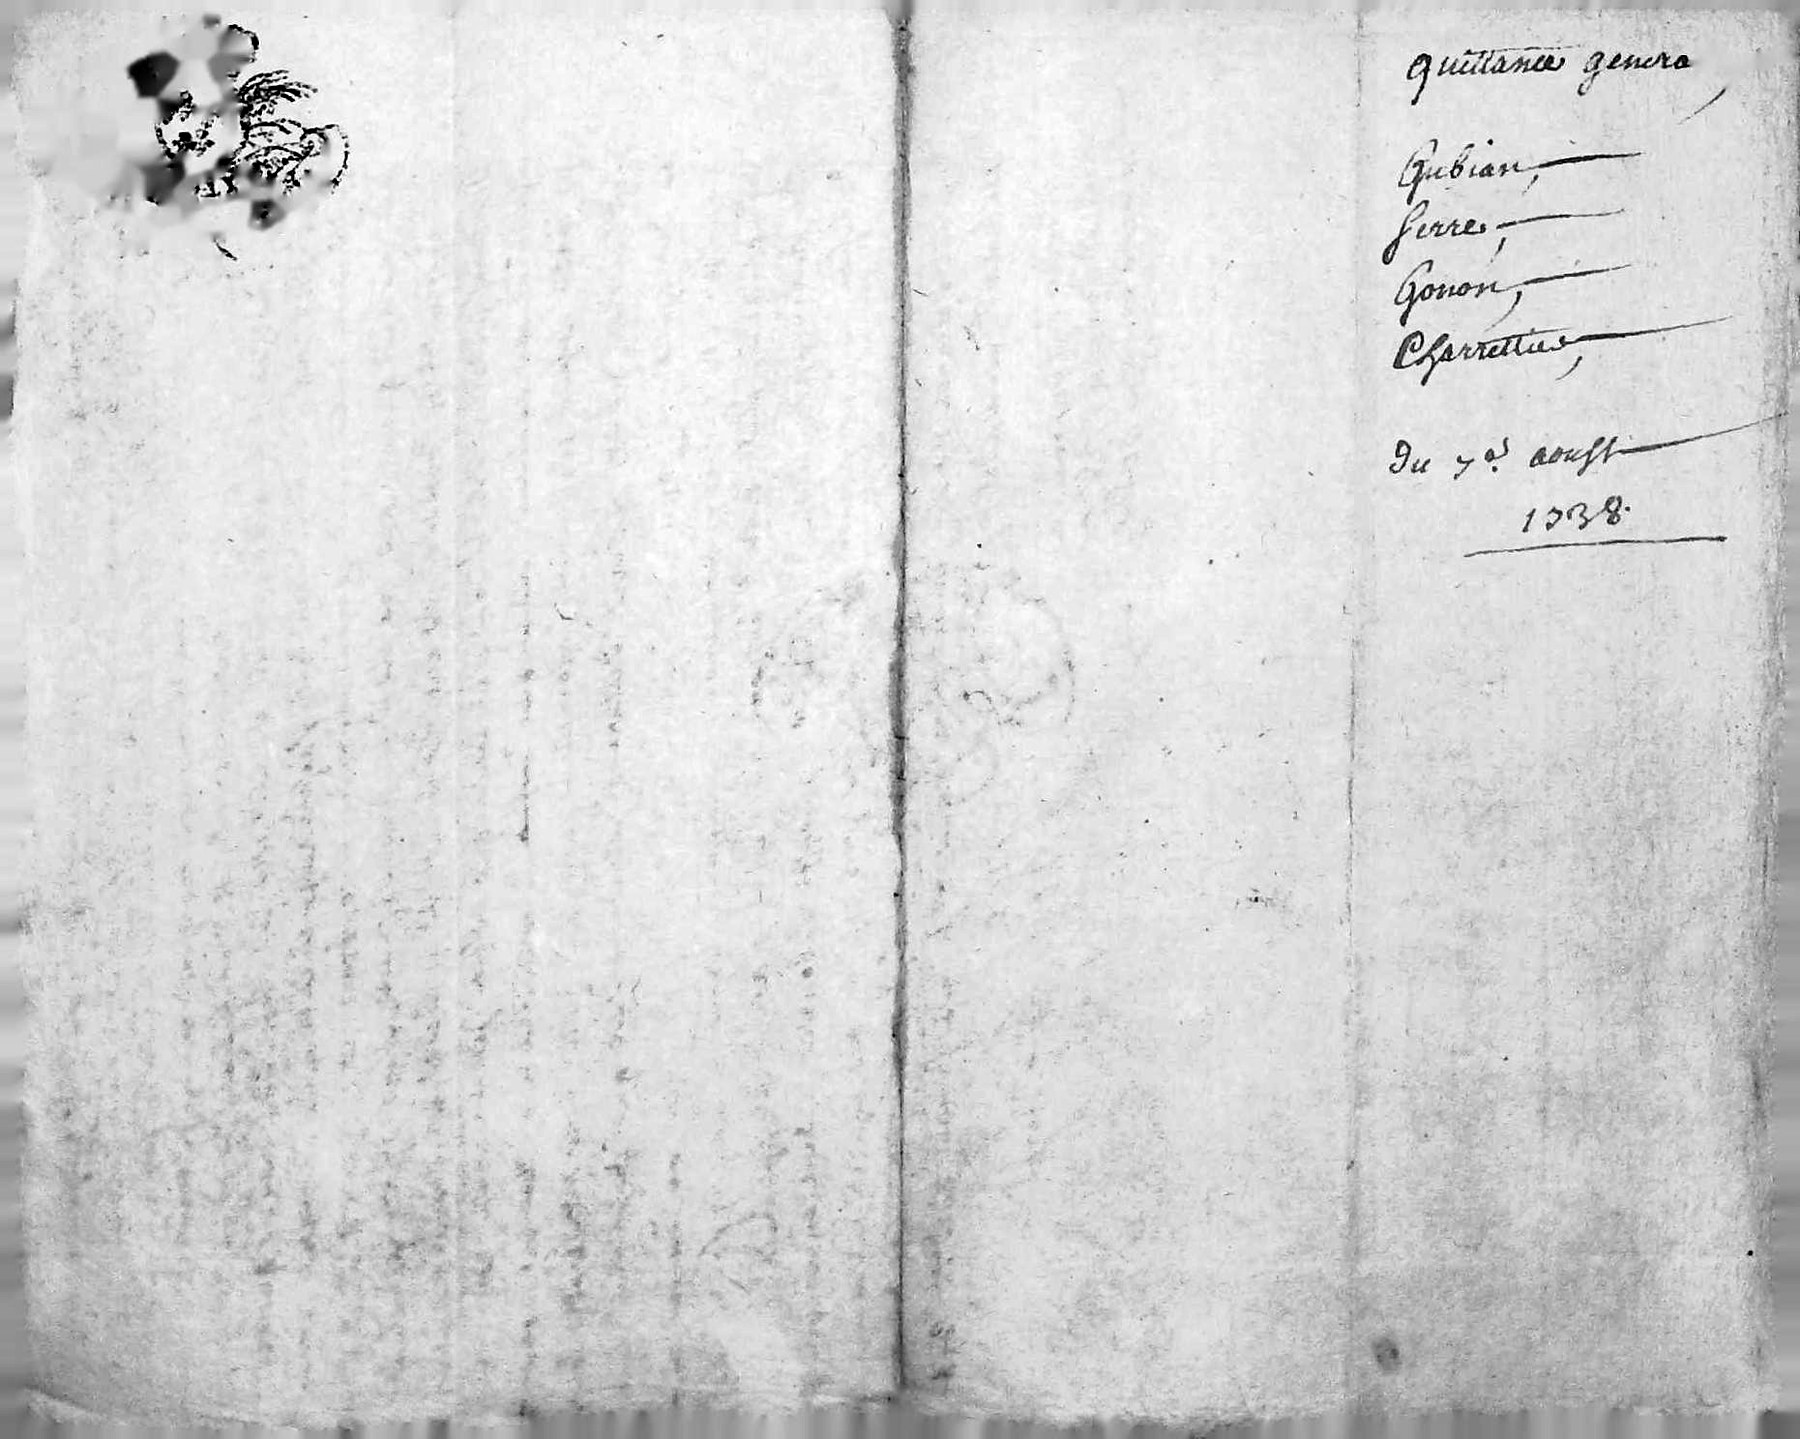 quittance genera
Gubian,
Serre,
Gonon,
Charrettie,
Du 7e. aoust
1738.